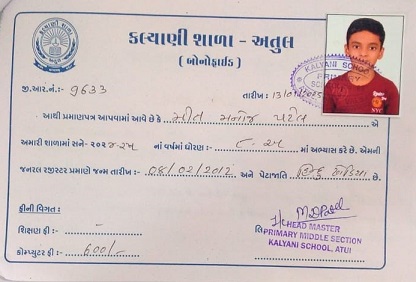 કલ્યાણી શાળા - અતુલ
( બોનોફાઈડ )
KALYANI SCHOOL
PRIMARY
જી.આર.નં.:- 9633
તારીખ :- 13/01/2025
આથી પ્રમાણપત્ર આપવામાં આવે છે કે મીત મનોજ પટેલ એ
અમારી શાળામાં સને- ૨૦૨૪-૨૫ નાં વર્ષમાં ધોરણ :- ૮-અ માં અભ્યાસ કરે છે. એમની
જનરલ રજીસ્ટર પ્રમાણે જન્મ તારીખ :- 08/02/2012 અને પેટાજાતિ હિન્દુ છે.
ફીની વિગત :
શિક્ષણ ફી :-
કોમ્પ્યુટર ફી :- 600/-
HEAD MASTER
PRIMARY MIDDLE SECTION
KALYANI SCHOOL, ATUL